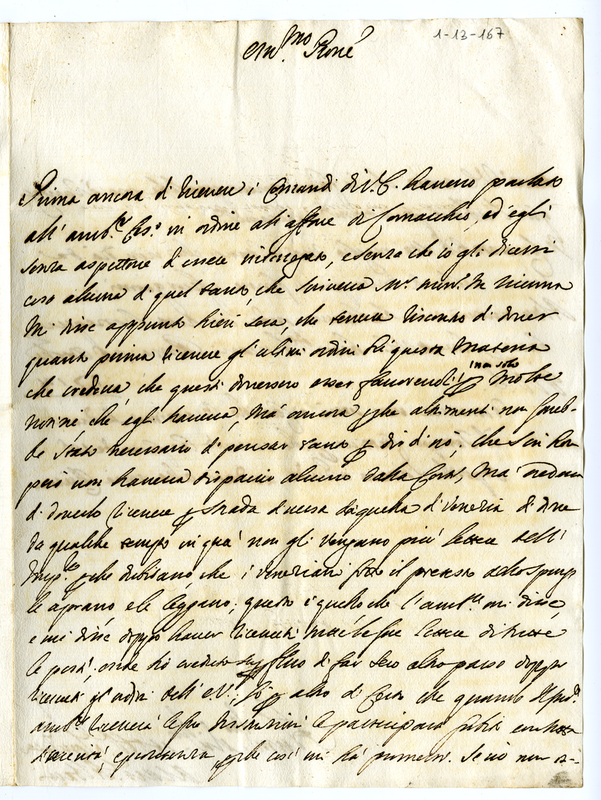 1-13-167
Em.mo Rone
Prima ancora di ricevere i Comandi di V. E. havevo parlato
all' amb.re Ces.o in ordine all'affare di Comacchio, ed egli
senza aspettare d'essere interrogato, e senza che io gli dicessi
cosa alcuna di quel tanto, che scriveva m.r min.
Mi disse appunto hieri sera, che teneva riscontro di dover
quanto prima ricevere gl'ultimi ordini di questa materia
che credeva, che questi dovessero esser favorevoli non solo p molte
notizie che egli haveva, mà ancora pche altrimenti non sareb-
be stato necessario di pensar tanto p dir di nò, che sin hora
però non haveva dispaccio alcuno dalla Corte, mà credeva
di doverlo ricevere p strada diversa da quella di Venezia di dove
da qualche tempo in quà non gli vengano più lettere dell'
Imp.re pche dubitano che i Veneziani sotto il pretesto
le aprano e le leggano; questo è quello che l'amb.re mi disse,
e mi disse doppo haver ricevute le sue lettere
la posta, onde hò creduto superfluo di far seco altro passo doppo
ricevuti gl'ordini dell' E.V.
amb.re riceverà le sue le participarà subito con tutta
sincerità, e puntualità, pche così mi hà promesso. Se io non